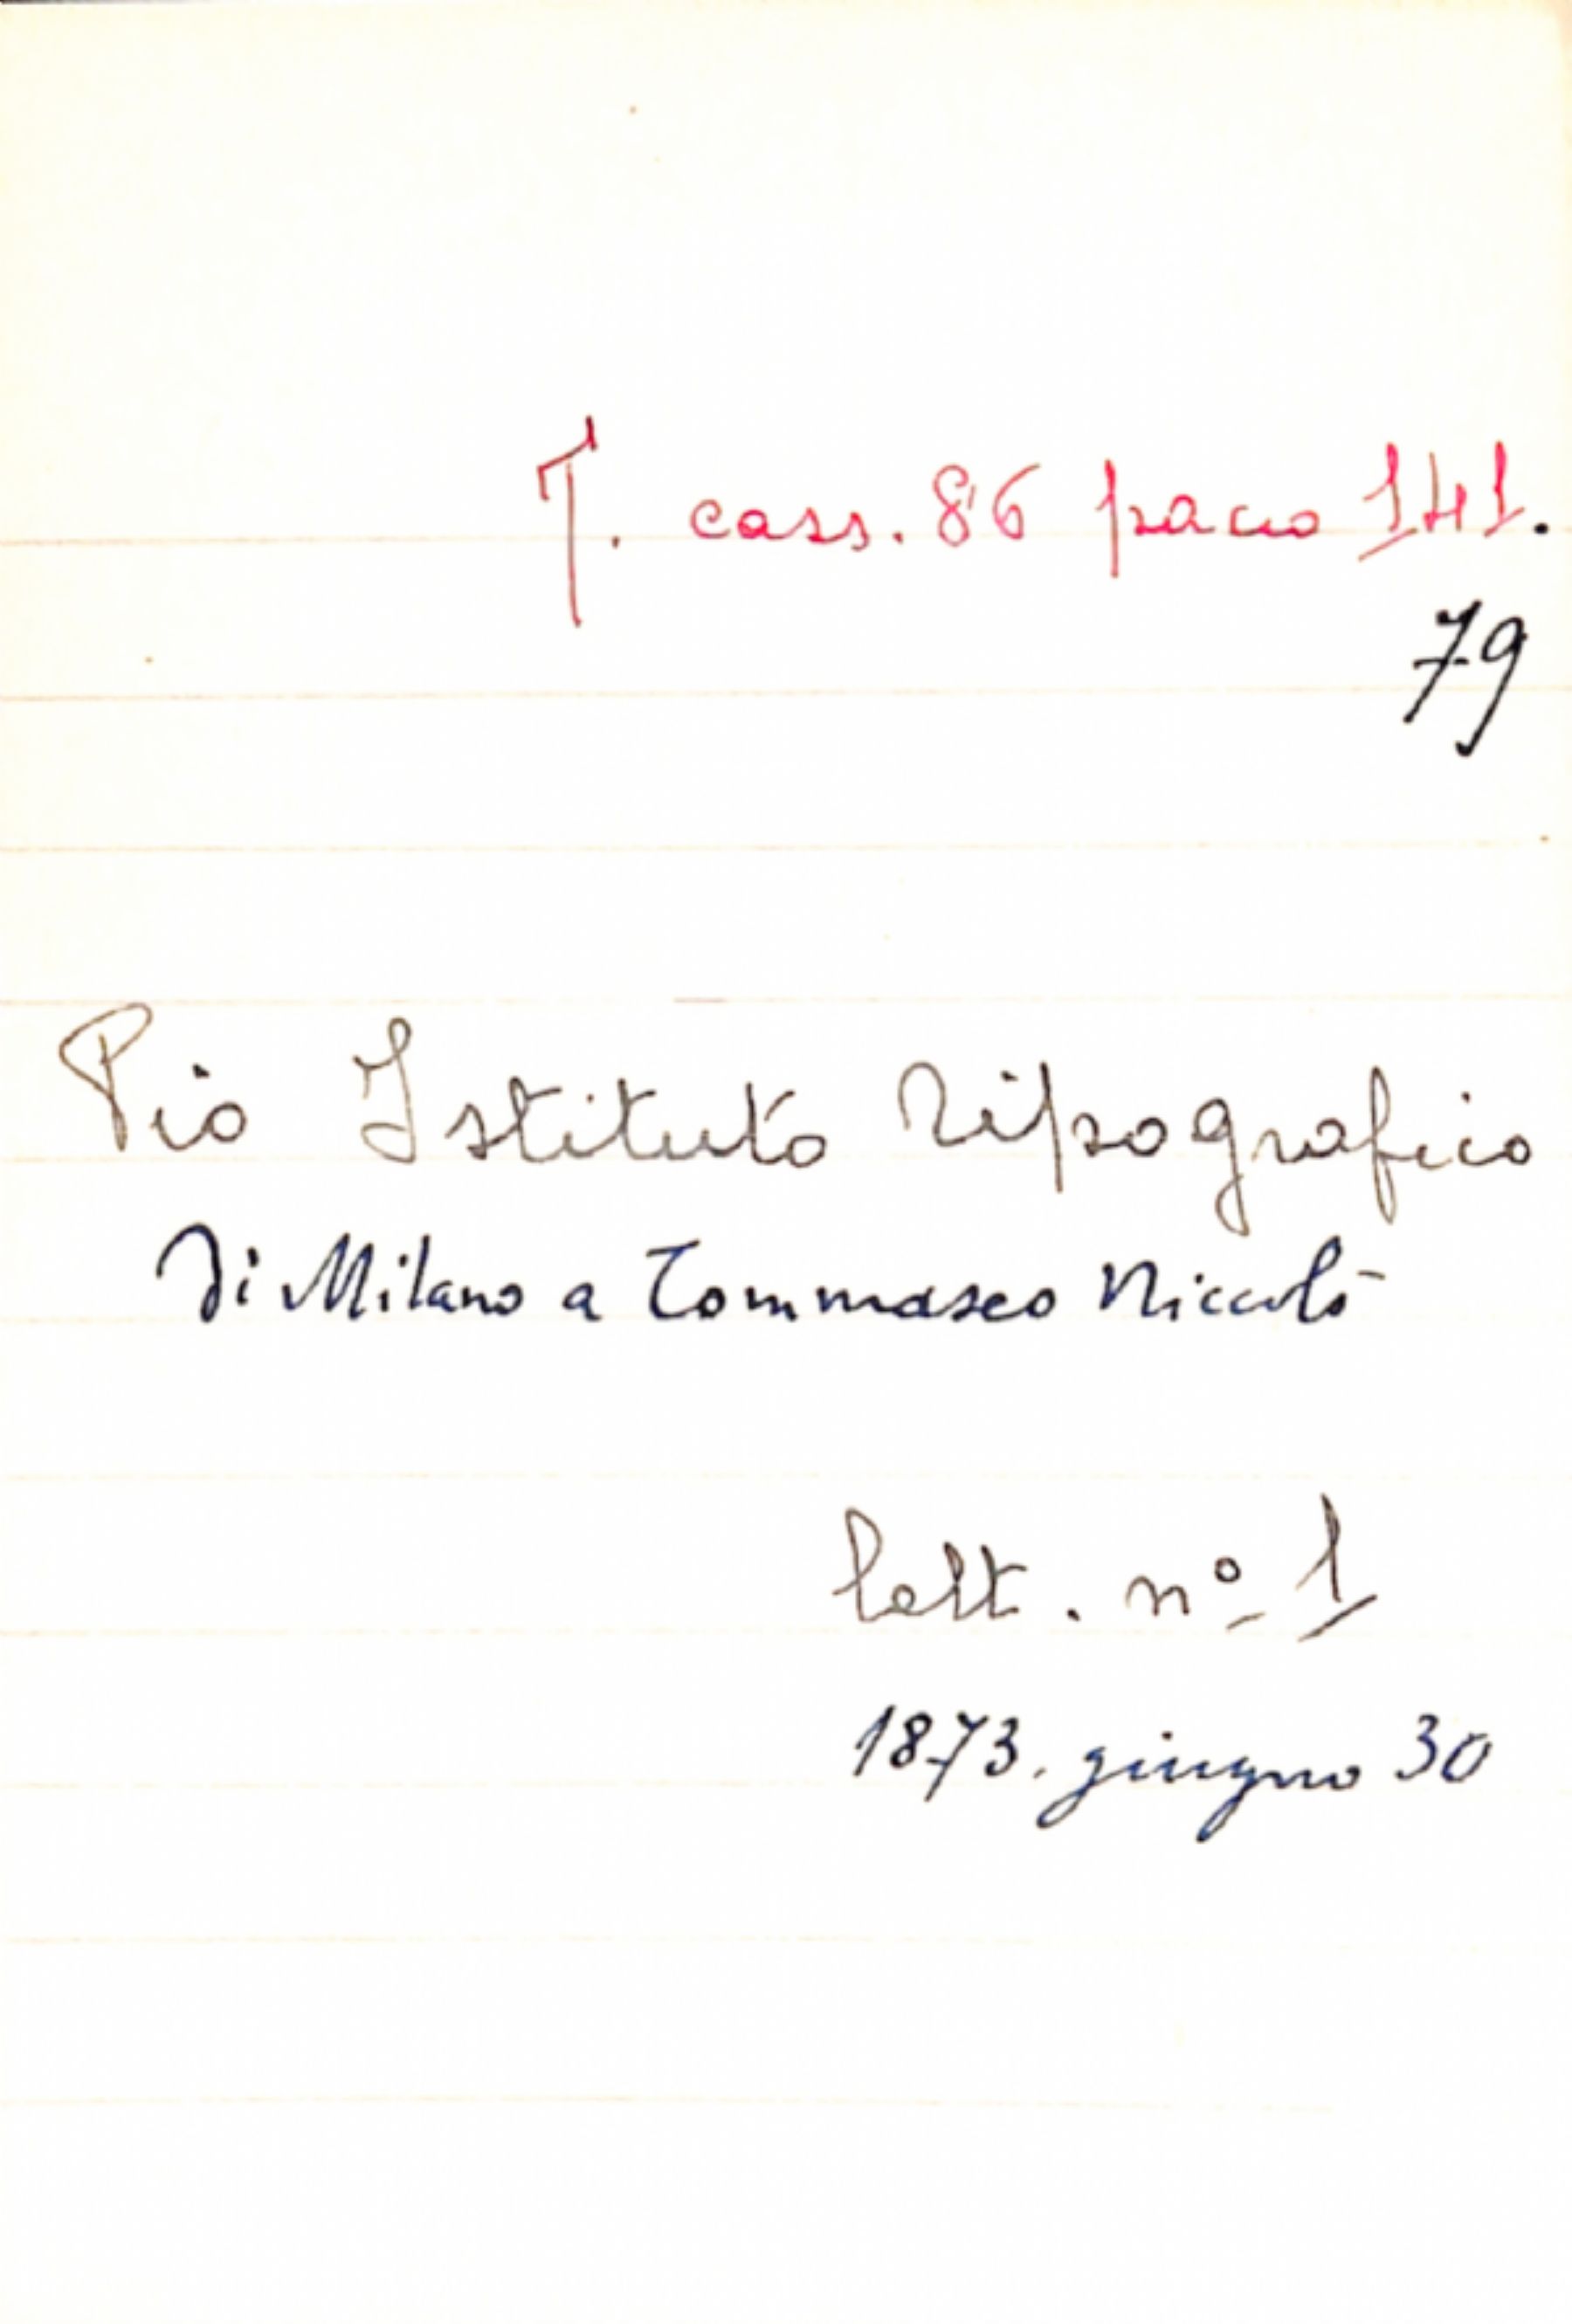 T. cass. 86 pacco 141.
79
Pio Istituto Tipografico
di Milano a Tommaseo Niccolò
lett. nº 1
1873. giugno 30